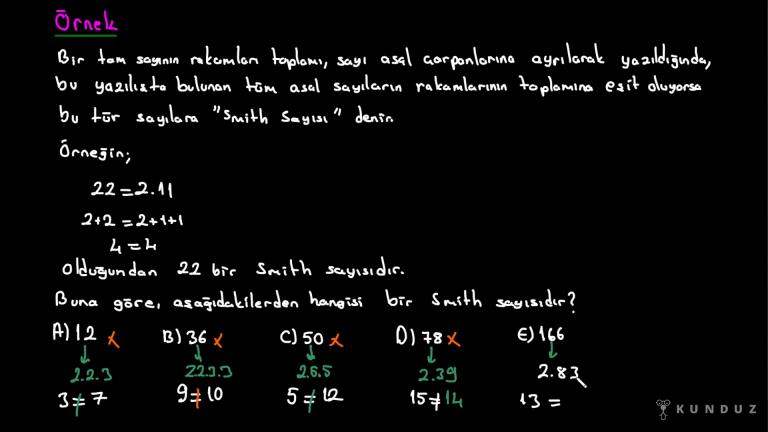 Örnek
Bir tam sayının rakamları toplamı, sayı asal çarpanlarına ayrılarak yazıldığında,
bu yazılışta bulunan tüm asal sayıların rakamlarının toplamına eşit oluyorsa
bu tür sayılara "Smith Sayısı" denir.
Örneğin;
22 = 2.11
2+2 = 2+1+1
4 = 4
olduğundan 22 bir Smith sayısıdır.
Buna göre, aşağıdakilerden hangisi bir Smith sayısıdır?
A) 12 x B) 36 x C) 50 x D) 78 x E) 166
2.2.3 2.2.3.3 2.5.5 2.39 2.83
3 ≠ 7 9 ≠ 10 5 ≠ 12 15 ≠ 14 13 =
KUNDUZ